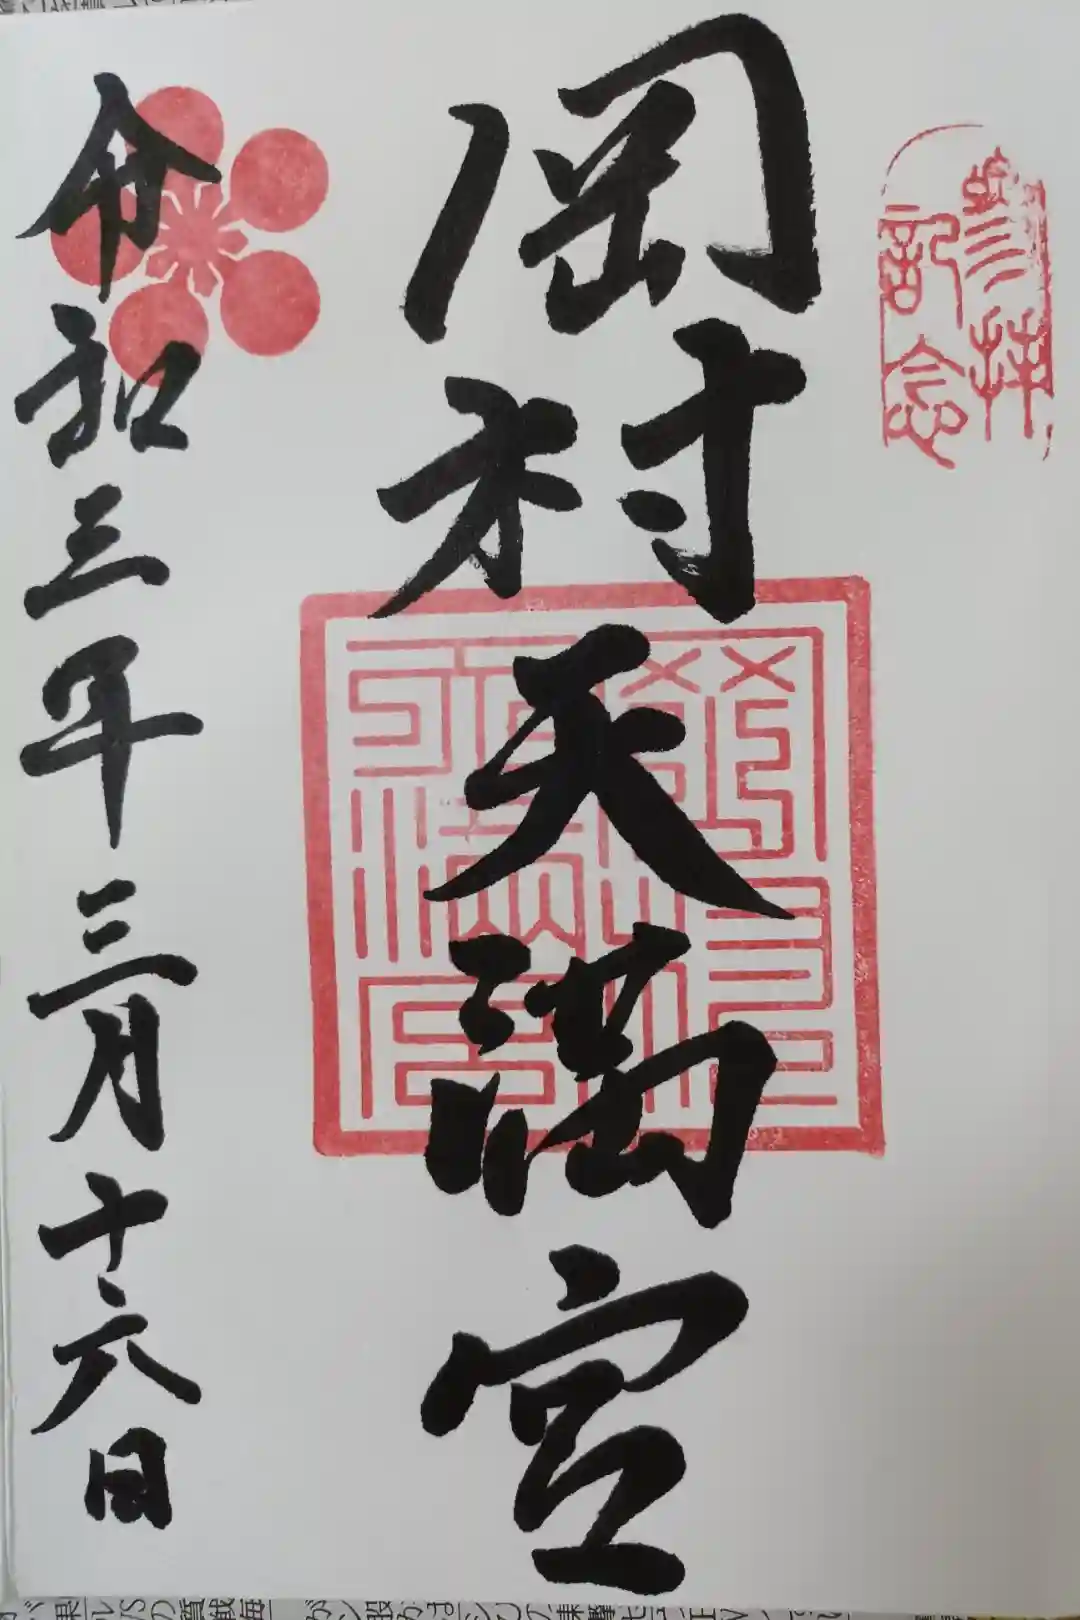 参拝
記念
岡村天満宮
令和三年三月十六日